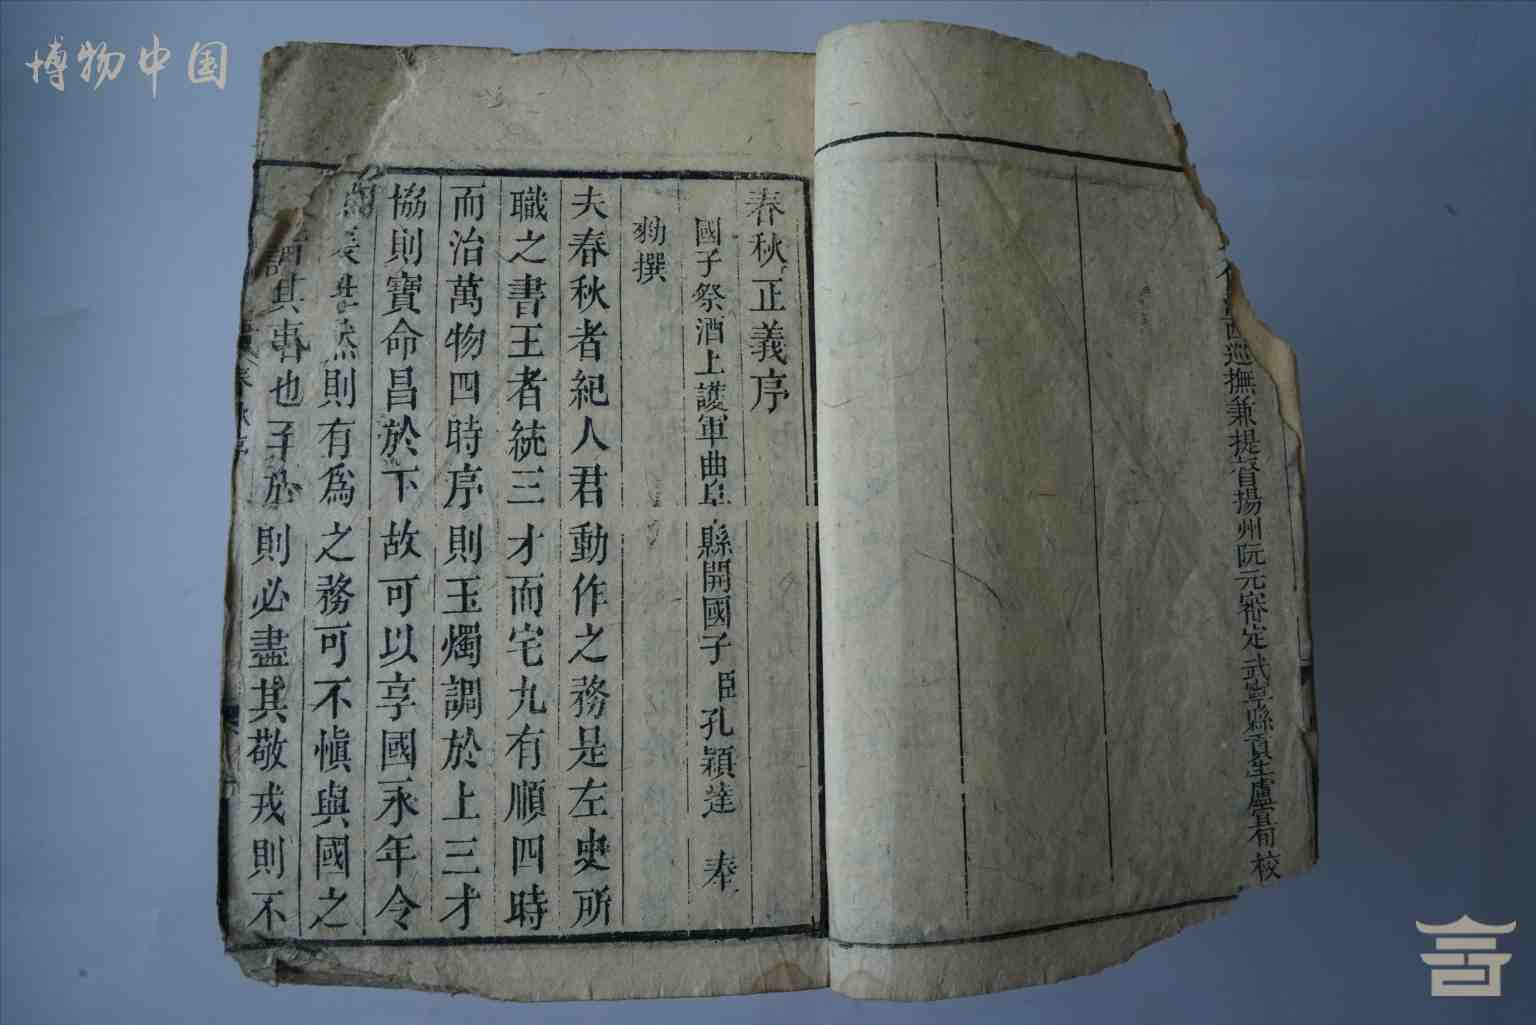 博物中国
巡撫兼提督揚州阮元審定武寧縣貢生盧宣旬校
春秋正義序
國子祭酒上護軍曲阜縣開國子臣孔穎達 奉
勑撰
夫春秋者紀人君動作之務是左史所
職之書王者統三才而宅九有順四時
而治萬物四時序則玉燭調於上三才
協則寶命昌於下故可以享國永年令
然則有為之務可不慎與國之
其事也 於 則必盡其敬戎則不
春秋序